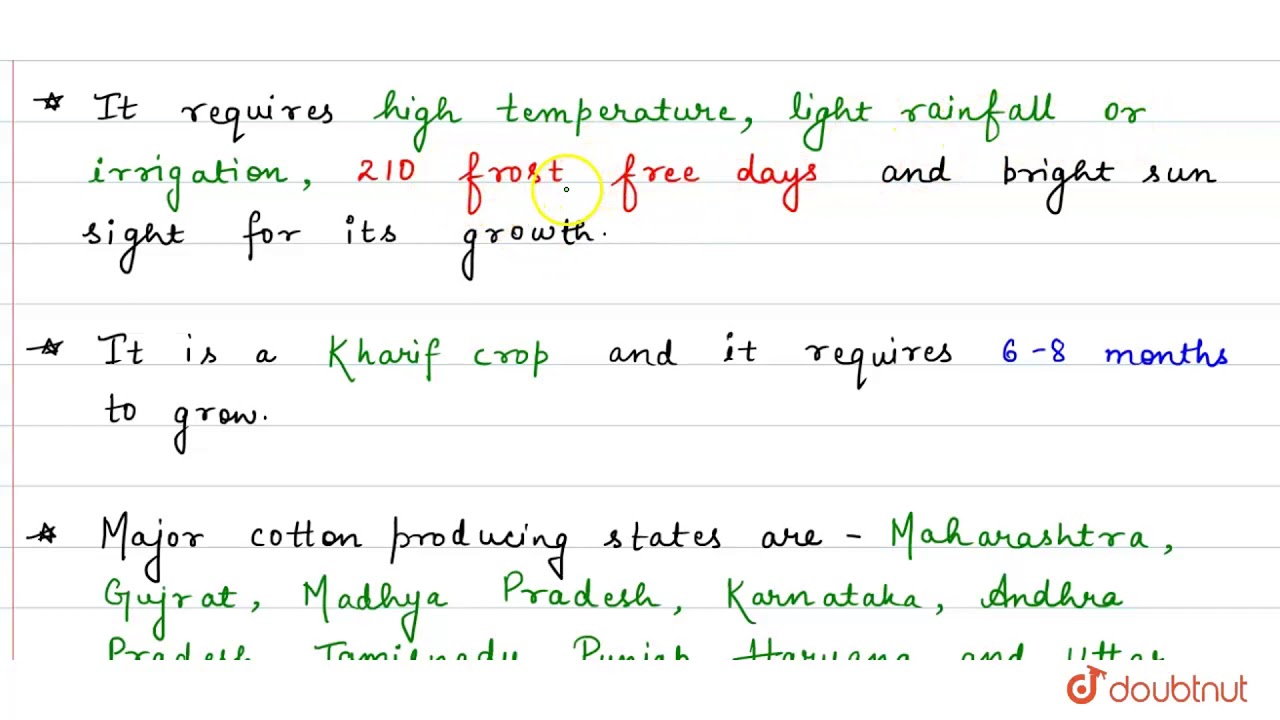 ☆ It requires high temperature, light rainfall or
irrigation, 210 frost free days and bright sun
sight for its growth.
☆ It is a Kharif crop and it requires 6-8 months
to grow.
☆ Major cotton producing states are - Maharashtra,
Gujrat, Madhya Pradesh, Karnataka, Andhra
Pradesh, Tamilnadu, Punjab, Haryana and Uttar
doubtnut